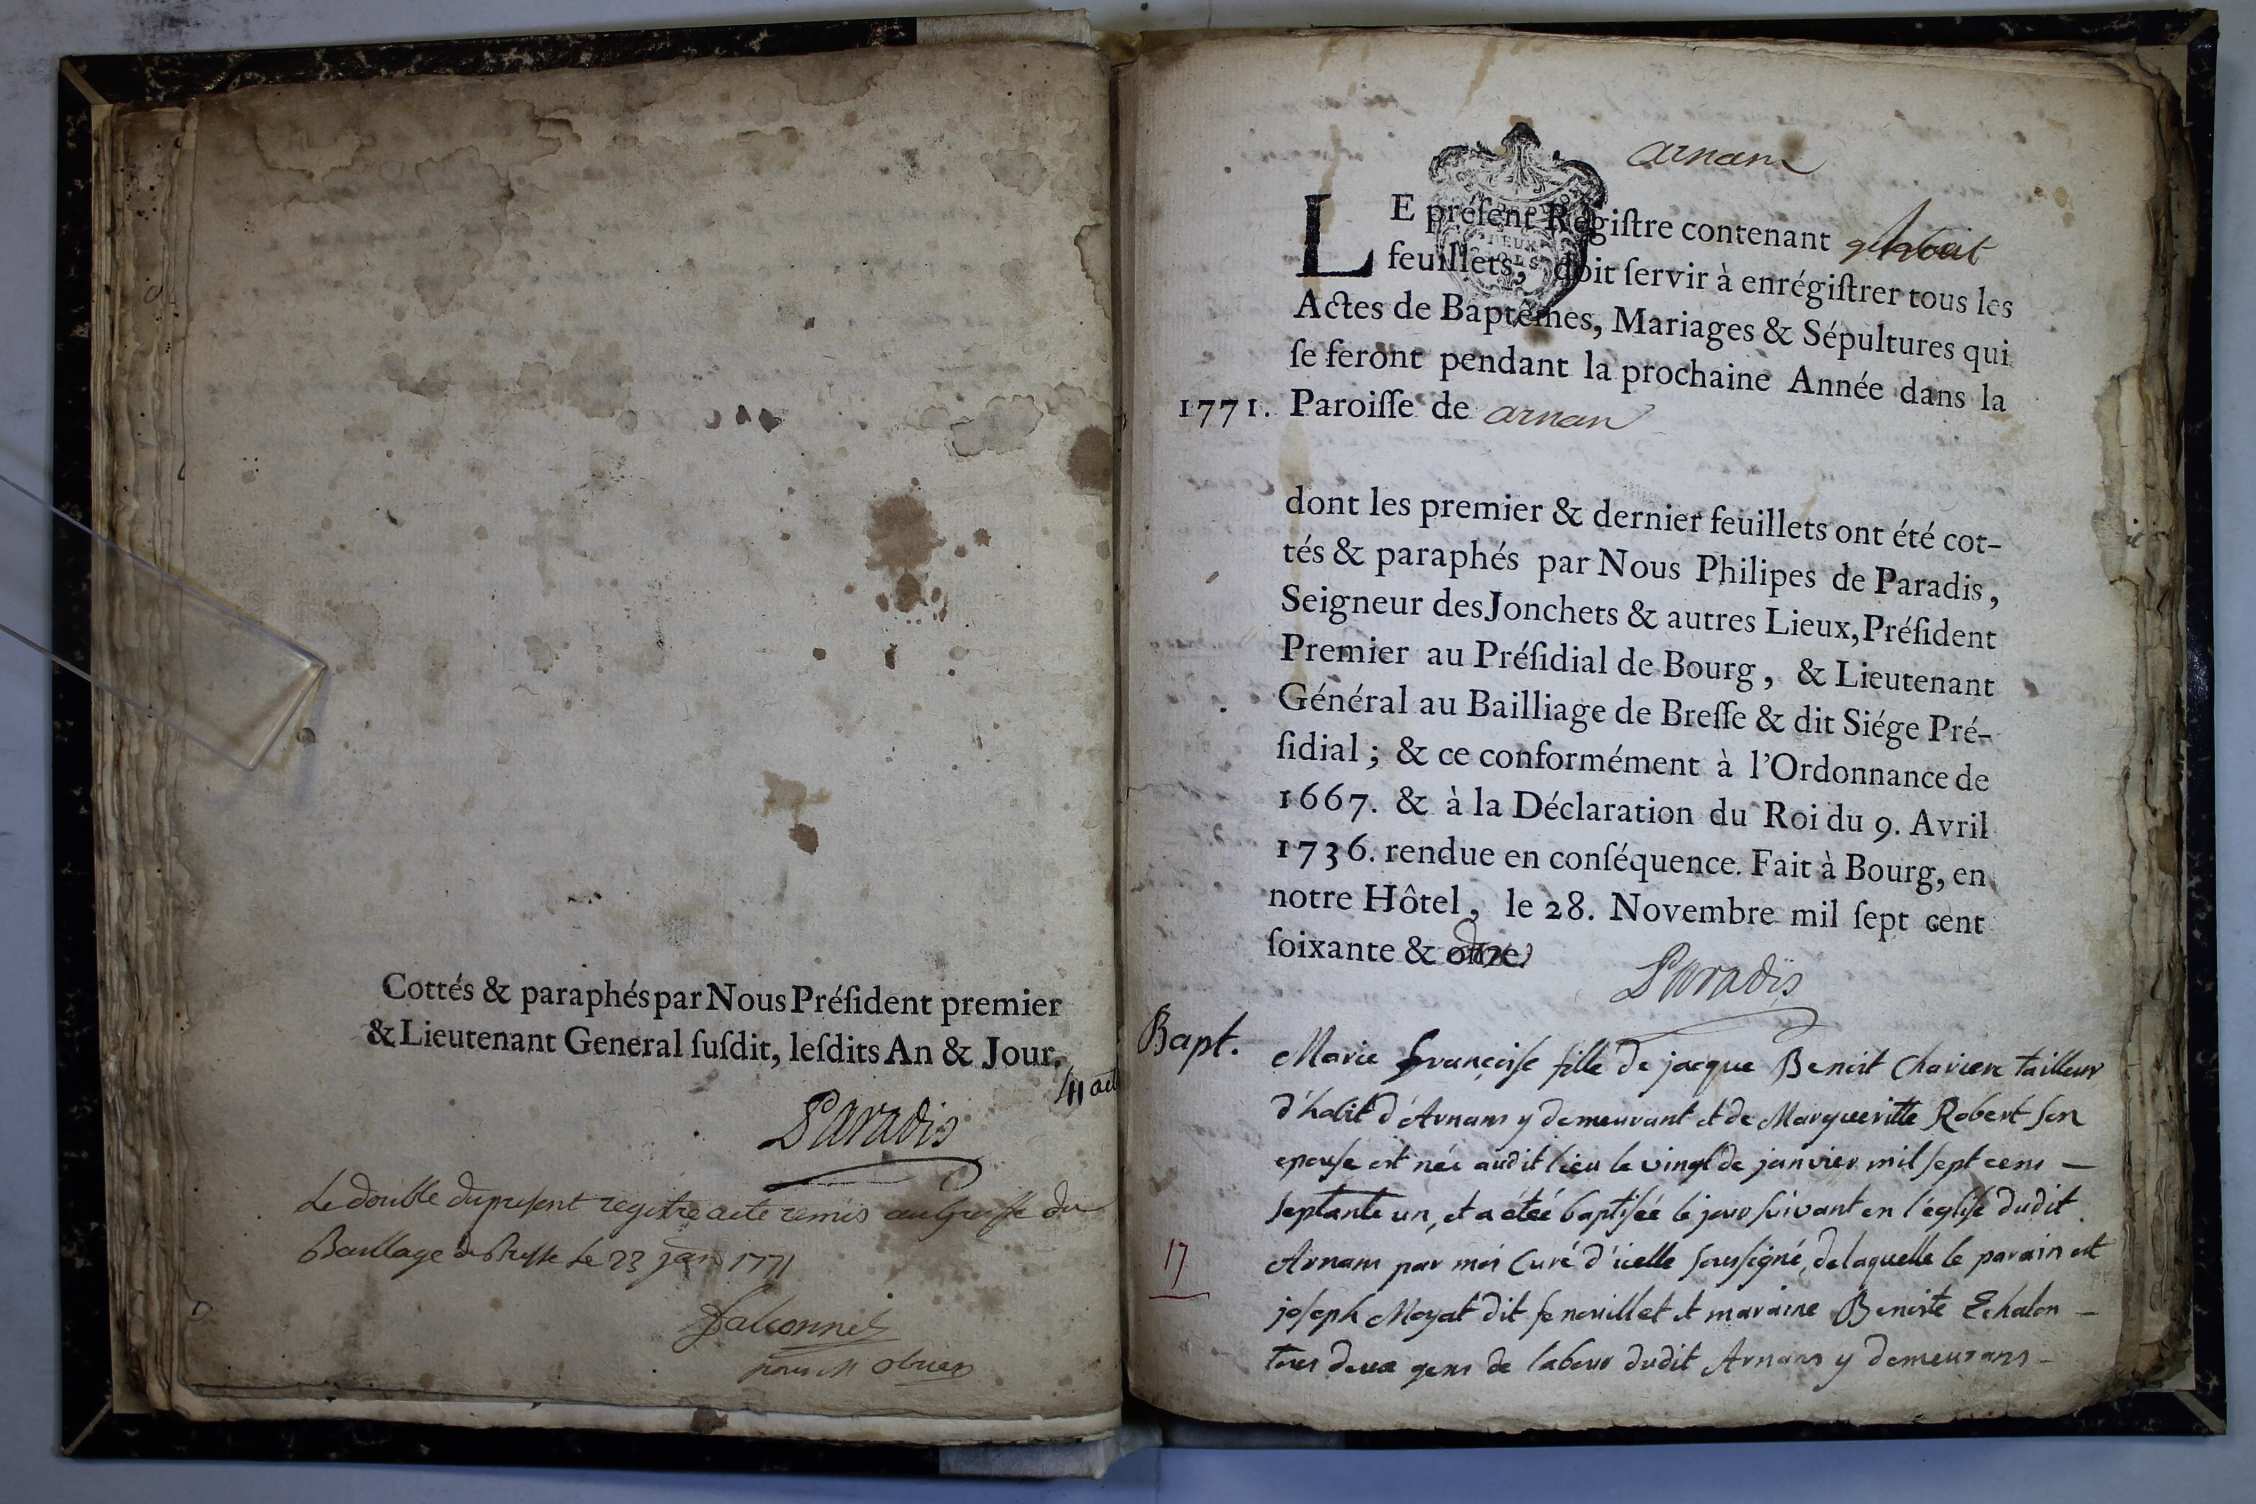 Cottés & paraphés par Nous Préſident premier
& Lieutenant General ſuſdit, leſdits An & Jour.
41 act
Paradis
Le double du present registre a ete remis au Greffe du
Baillage de Bresse le 23 jan 1771
Falconnet
pour M
arnans
LE préſent Régiſtre contenant
feuillets, doit ſervir à enrégiſtrer tous les
Actes de Baptêmes, Mariages & Sépultures qui
ſe feront pendant la prochaine Année dans la
1771. Paroiſſe de arnan
dont les premier & dernier feuillets ont été cot-
tés & paraphés par Nous Philipes de Paradis,
Seigneur des Jonchets & autres Lieux, Préſident
Premier au Préſidial de Bourg, & Lieutenant
Général au Bailliage de Breſſe & dit Siége Pré-
ſidial; & ce conformément à l'Ordonnance de
1667. & à la Déclaration du Roi du 9. Avril
1736. rendue en conſéquence. Fait à Bourg, en
notre Hôtel, le 28. Novembre mil ſept cent
ſoixante &
Paradis
Bapt. Marie Françoise fille de jacque Benoit Chaviere tailleur
d'habit d'Arnans y demeurant et de Margueritte Robert son
epouse est née audit lieu le vingt de janvier mil sept cens –
septante un, et a étée baptisée le jour suivant en l'église dudit
Arnans par moi Curé d'icelle soussigné, de laquelle le parain est
17
joseph Moyat dit fenouillet et maraine Benoite Echalon –
tous deux gens de labour dudit Arnans y demeurans –